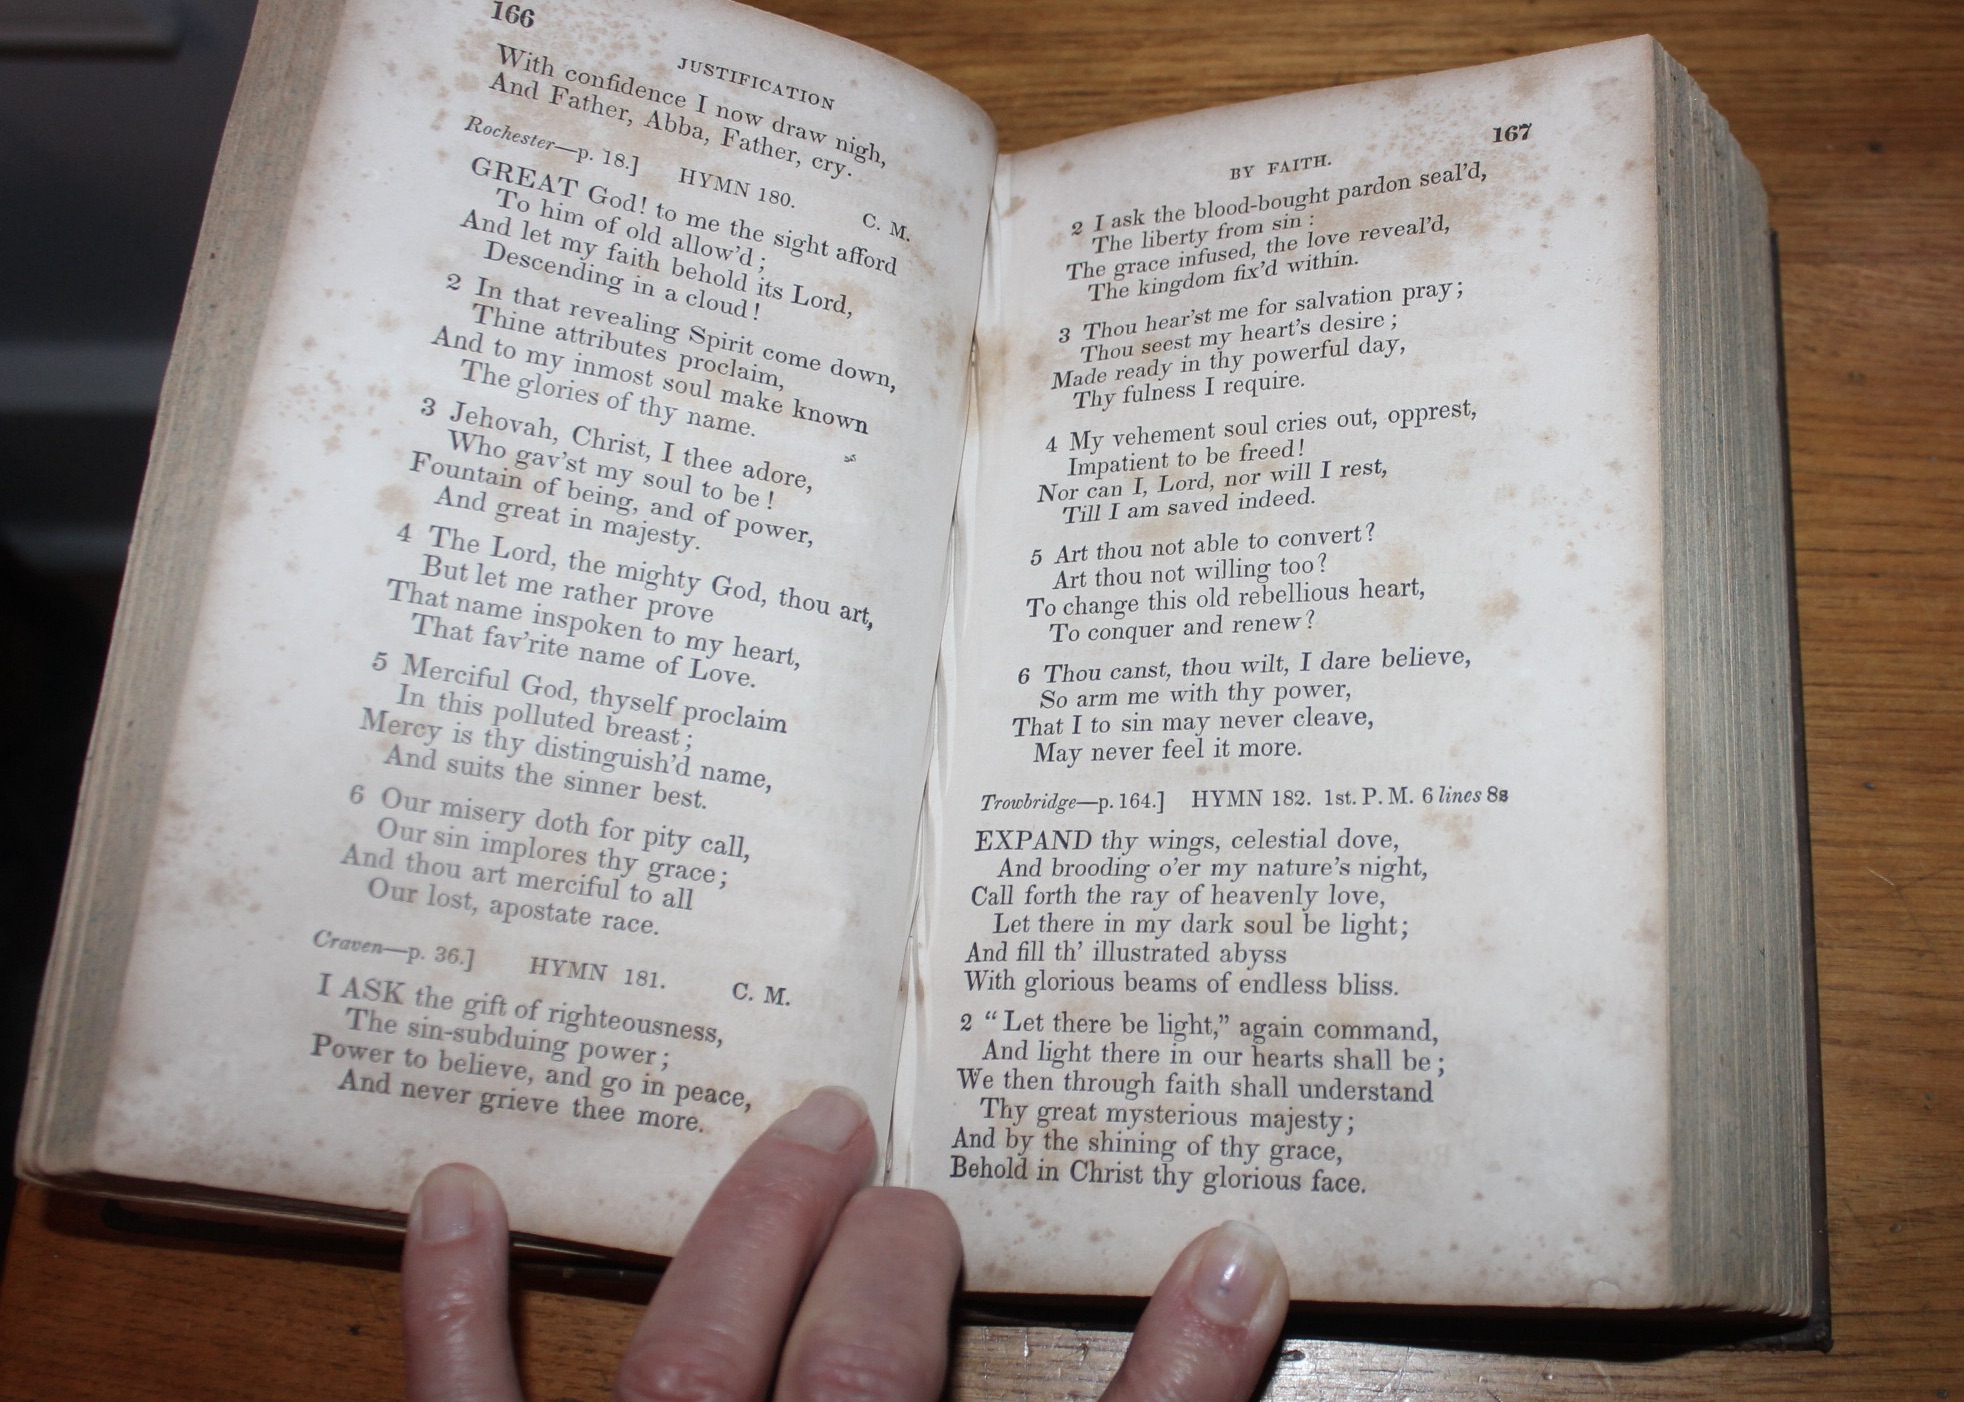 166
JUSTIFICATION
With confidence I now draw nigh,
And Father, Abba, Father, cry.
Rochester—p. 18.] HYMN 180. C. M.
GREAT God! to me the sight afford
To him of old allow'd;
And let my faith behold its Lord,
Descending in a cloud!
2 In that revealing Spirit come down,
Thine attributes proclaim,
And to my inmost soul make known
The glories of thy name.
3 Jehovah, Christ, I thee adore,
Who gav'st my soul to be!
Fountain of being, and of power,
And great in majesty.
4 The Lord, the mighty God, thou art,
But let me rather prove
That name inspoken to my heart,
That fav'rite name of Love.
5 Merciful God, thyself proclaim
In this polluted breast;
Mercy is thy distinguish'd name,
And suits the sinner best.
6 Our misery doth for pity call,
Our sin implores thy grace;
And thou art merciful to all
Our lost, apostate race.
Craven—p. 36.] HYMN 181. C. M.
I ASK the gift of righteousness,
The sin-subduing power;
Power to believe, and go in peace,
And never grieve thee more.
167
BY FAITH.
2 I ask the blood-bought pardon seal'd,
The liberty from sin:
The grace infused, the love reveal'd,
The kingdom fix'd within.
3 Thou hear'st me for salvation pray;
Thou seest my heart's desire;
Made ready in thy powerful day,
Thy fulness I require.
4 My vehement soul cries out, opprest,
Impatient to be freed!
Nor can I, Lord, nor will I rest,
Till I am saved indeed.
5 Art thou not able to convert?
Art thou not willing too?
To change this old rebellious heart,
To conquer and renew?
6 Thou canst, thou wilt, I dare believe,
So arm me with thy power,
That I to sin may never cleave,
May never feel it more.
Trowbridge—p. 164.] HYMN 182. 1st. P. M. 6 lines 8s
EXPAND thy wings, celestial dove,
And brooding o'er my nature's night,
Call forth the ray of heavenly love,
Let there in my dark soul be light;
And fill th' illustrated abyss
With glorious beams of endless bliss.
2 "Let there be light," again command,
And light there in our hearts shall be;
We then through faith shall understand
Thy great mysterious majesty;
And by the shining of thy grace,
Behold in Christ thy glorious face.